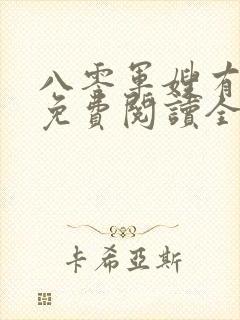 八零軍嫂有
免費閱讀全
卡希亞斯